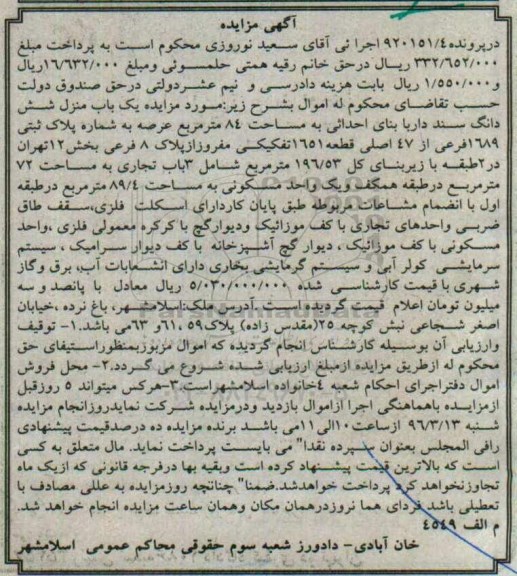 آگهی مزایده
درپرونده۹۲۰۱۵۱/٤ اجرا ئی آقای سعید نوروزی محکوم است به پرداخت مبلغ
۳۳۲/٦٥۲/۰۰۰ ریال درحق خانم رقیه همتی حلمسوئی ومبلغ ۱٦/٦۳۲/۰۰۰ریال
و۱/٥٥۰/۰۰۰ ریال بابت هزینه دادرسی و نیم عشردولتی درحق صندوق دولت
حسب تقاضای محکوم له اموال بشرح زیر:مورد مزایده یک باب منزل شش
دانگ سند داربا بنای احداثی به مساحت ۸٤ مترمربع عرصه به شماره پلاک ثبتی
۱٦۸۹فرعی از ٤۷ اصلی قطعه۱٦٥۱تفکیکی مفروزازپلاک ۸ فرعی بخش۱۲تهران
در۲طبقه با زیربنای کل ۱۹٦/٥۳ مترمربع شامل ۳باب تجاری به مساحت ۷۲
مترمربع درطبقه همکف ویک واحد مسکونی به مساحت ۸۹/٤ مترمربع درطبقه
اول با انضمام مشاعات مربوطه طبق پایان کاردارای اسکلت فلزی،سقف طاق
ضربی واحدهای تجاری با کف موزائیک ودیوارگچ با کرکره معمولی فلزی ،واحد
مسکونی با کف موزائیک ، دیوار گچ آشپزخانه با کف دیوار سرامیک ، سیستم
سرمایشی کولر آبی و سیستم گرمایشی بخاری دارای انشعابات آب، برق وگاز
شهری با قیمت کارشناسی شده ٥/۰۳۰/۰۰۰/۰۰۰ ریال معادل با پانصد و سه
میلیون تومان اعلام قیمت گردیده است. آدرس ملک:اسلامشهر، باغ نرده ،خیابان
اصغر شجاعی نبش کوچه ۲٥(مقدس زاده) پلاک٥۹ ،٦۱و ٦۳می باشد.۱- توقیف
وارزیابی آن بوسیله کارشناس انجام گردیده که اموال مزبوربمنظوراستیفای حق
محکوم له ازطریق مزایده ازمبلغ ارزیابی شده شروع می گردد.۲- محل فروش
اموال دفتراجرای احکام شعبه ٤خانواده اسلامشهراست.۳-هرکس میتواند ٥ روزقبل
ازمزایده باهماهنگی اجرا ازاموال بازدید ودرمزایده شرکت نمایدروزانجام مزایده
شنبه ۹٦/۳/۱۳ ازساعت۱۰الی۱۱می باشد برنده مزایده ده درصدقیمت پیشنهادی
رافی المجلس بعنوان سپرده نقدا" می بایست پرداخت نماید. مال متعلق به کسی
است که بالاترین قیمت پیشنهاد کرده است وبقیه بها درفرجه قانونی که ازیک ماه
تجاوزنخواهد کرد پرداخت خواهدشد.ضمنا" چنانچه روزمزایده به عللی مصادف با
تعطیلی باشد فردای هما نروزدرهمان مکان وهمان ساعت مزایده انجام خواهد شد.
م الف ٤٥٤۹
خان آبادی- دادورز شعبه سوم حقوقی محاکم عمومی اسلامشهر